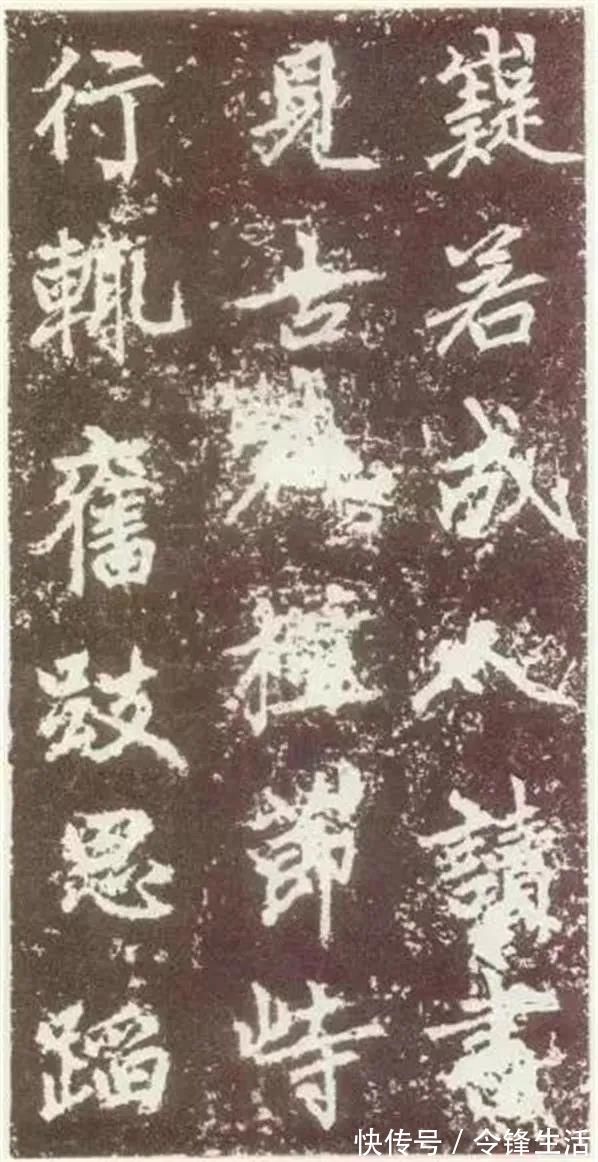 嶷若成人讀書
見古節峙
行輒奮跂思蹈
快传号/令锋生活